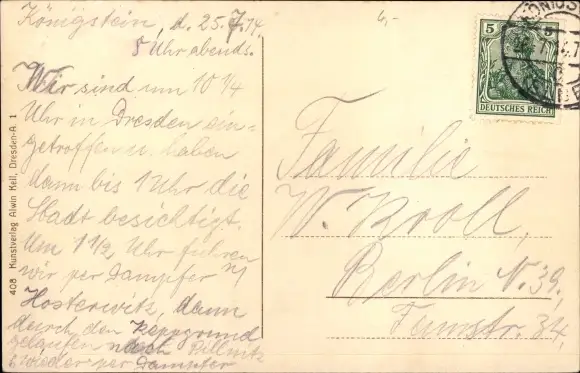 Königstein, d. 25.7.14,
5 Uhr abends.
Wir sind um 10 1/4
Uhr in Dresden ein=
getroffen u. haben
dann bis 1 Uhr die
Stadt besichtigt.
Um 1 1/2 Uhr fuhren
wir per Dampfer n/
Hosterwitz, dann
durch den Keppgrund
gelaufen nach Pillnitz
wieder per Dampfer
6,-
5
DEUTSCHES REICH
Familie
W. Kroll,
Berlin N. 39,
Tennstr. 34,
408 Kunstverlag Alwin Keil, Dresden-A. 1